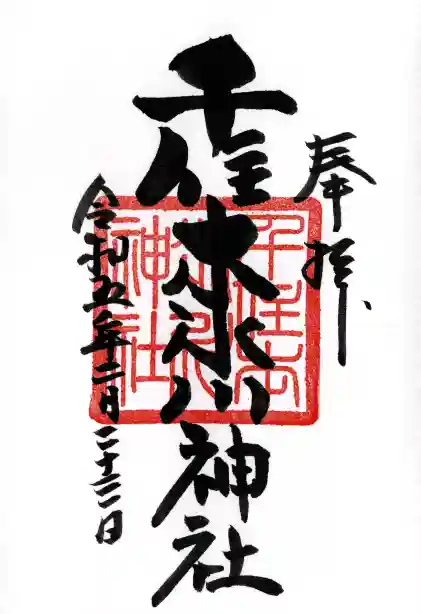 奉拝
千住本氷川神社
令和五年二月二十三日
千住本
氷川
神社